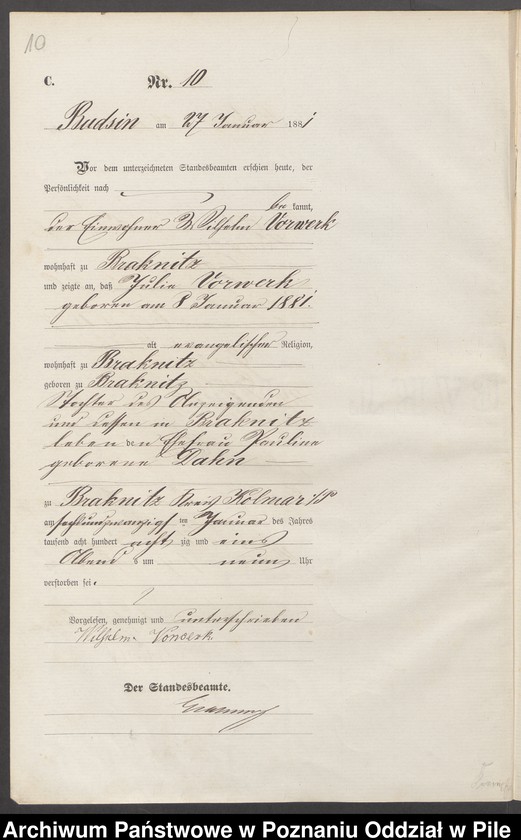 10
C. Nr. 10
Budsin am 27 Januar 1881
Vor dem unterzeichneten Standesbeamten erschien heute, der
Persönlichkeit nach
be kannt,
der Einwohner Wilhelm Vorwerk
wohnhaft zu Braknitz
und zeigte an, daß Julie Vorwerk
geboren am 8 Januar 1881.
alt evangelischer Religion,
wohnhaft zu Braknitz
geboren zu Braknitz
Tochter des Anzeigenden
und dessen in Braknitz
lebenden Ehefrau Pauline
geborene Dahn
zu Braknitz Kreis Kolmar i/P
am sechsundzwanzigsten Januar des Jahres
tausend acht hundert achtzig und eins
Abends um neun Uhr
verstorben sei.
Vorgelesen, genehmigt und unterschrieben
Wilhelm Vorwerk
Der Standesbeamte.
Archiwum Państwowe w Poznaniu Oddział w Pile